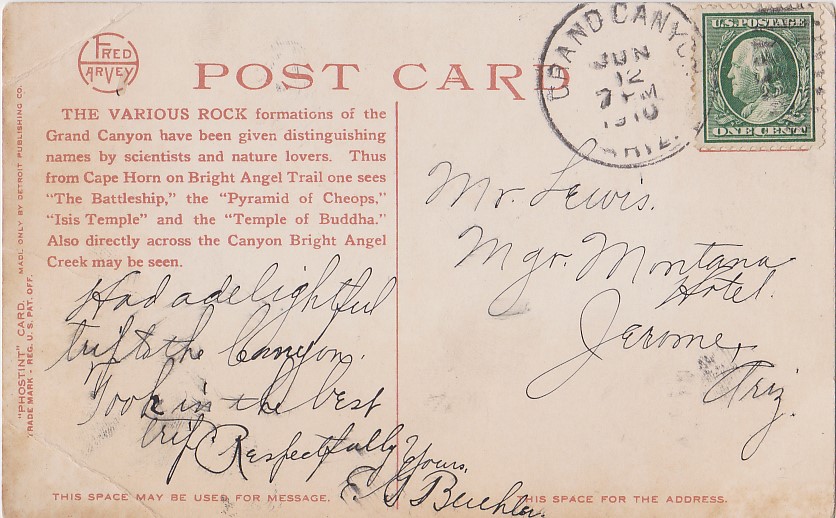 FRED
HARVEY
POST CARD
THE VARIOUS ROCK formations of the
Grand Canyon have been given distinguishing
names by scientists and nature lovers. Thus
from Cape Horn on Bright Angel Trail one sees
"The Battleship," the "Pyramid of Cheops,"
"Isis Temple" and the "Temple of Buddha."
Also directly across the Canyon Bright Angel
Creek may be seen.
"PHOSTINT" CARD. MADE ONLY BY DETROIT PUBLISHING CO.
TRADE MARK - REG. U. S. PAT. OFF.
Had a delightful
trip to the Canyon.
Took in the best
trip
Respectfully Yours,
Buehler
THIS SPACE MAY BE USED FOR MESSAGE.
GRAND CANYON
JUN
12
7 PM
1910
ARIZ.
U.S. POSTAGE
ONE CENT
Mr. Lewis.
Mgr. Montana
Hotel.
Jerome,
Ariz.
THIS SPACE FOR THE ADDRESS.